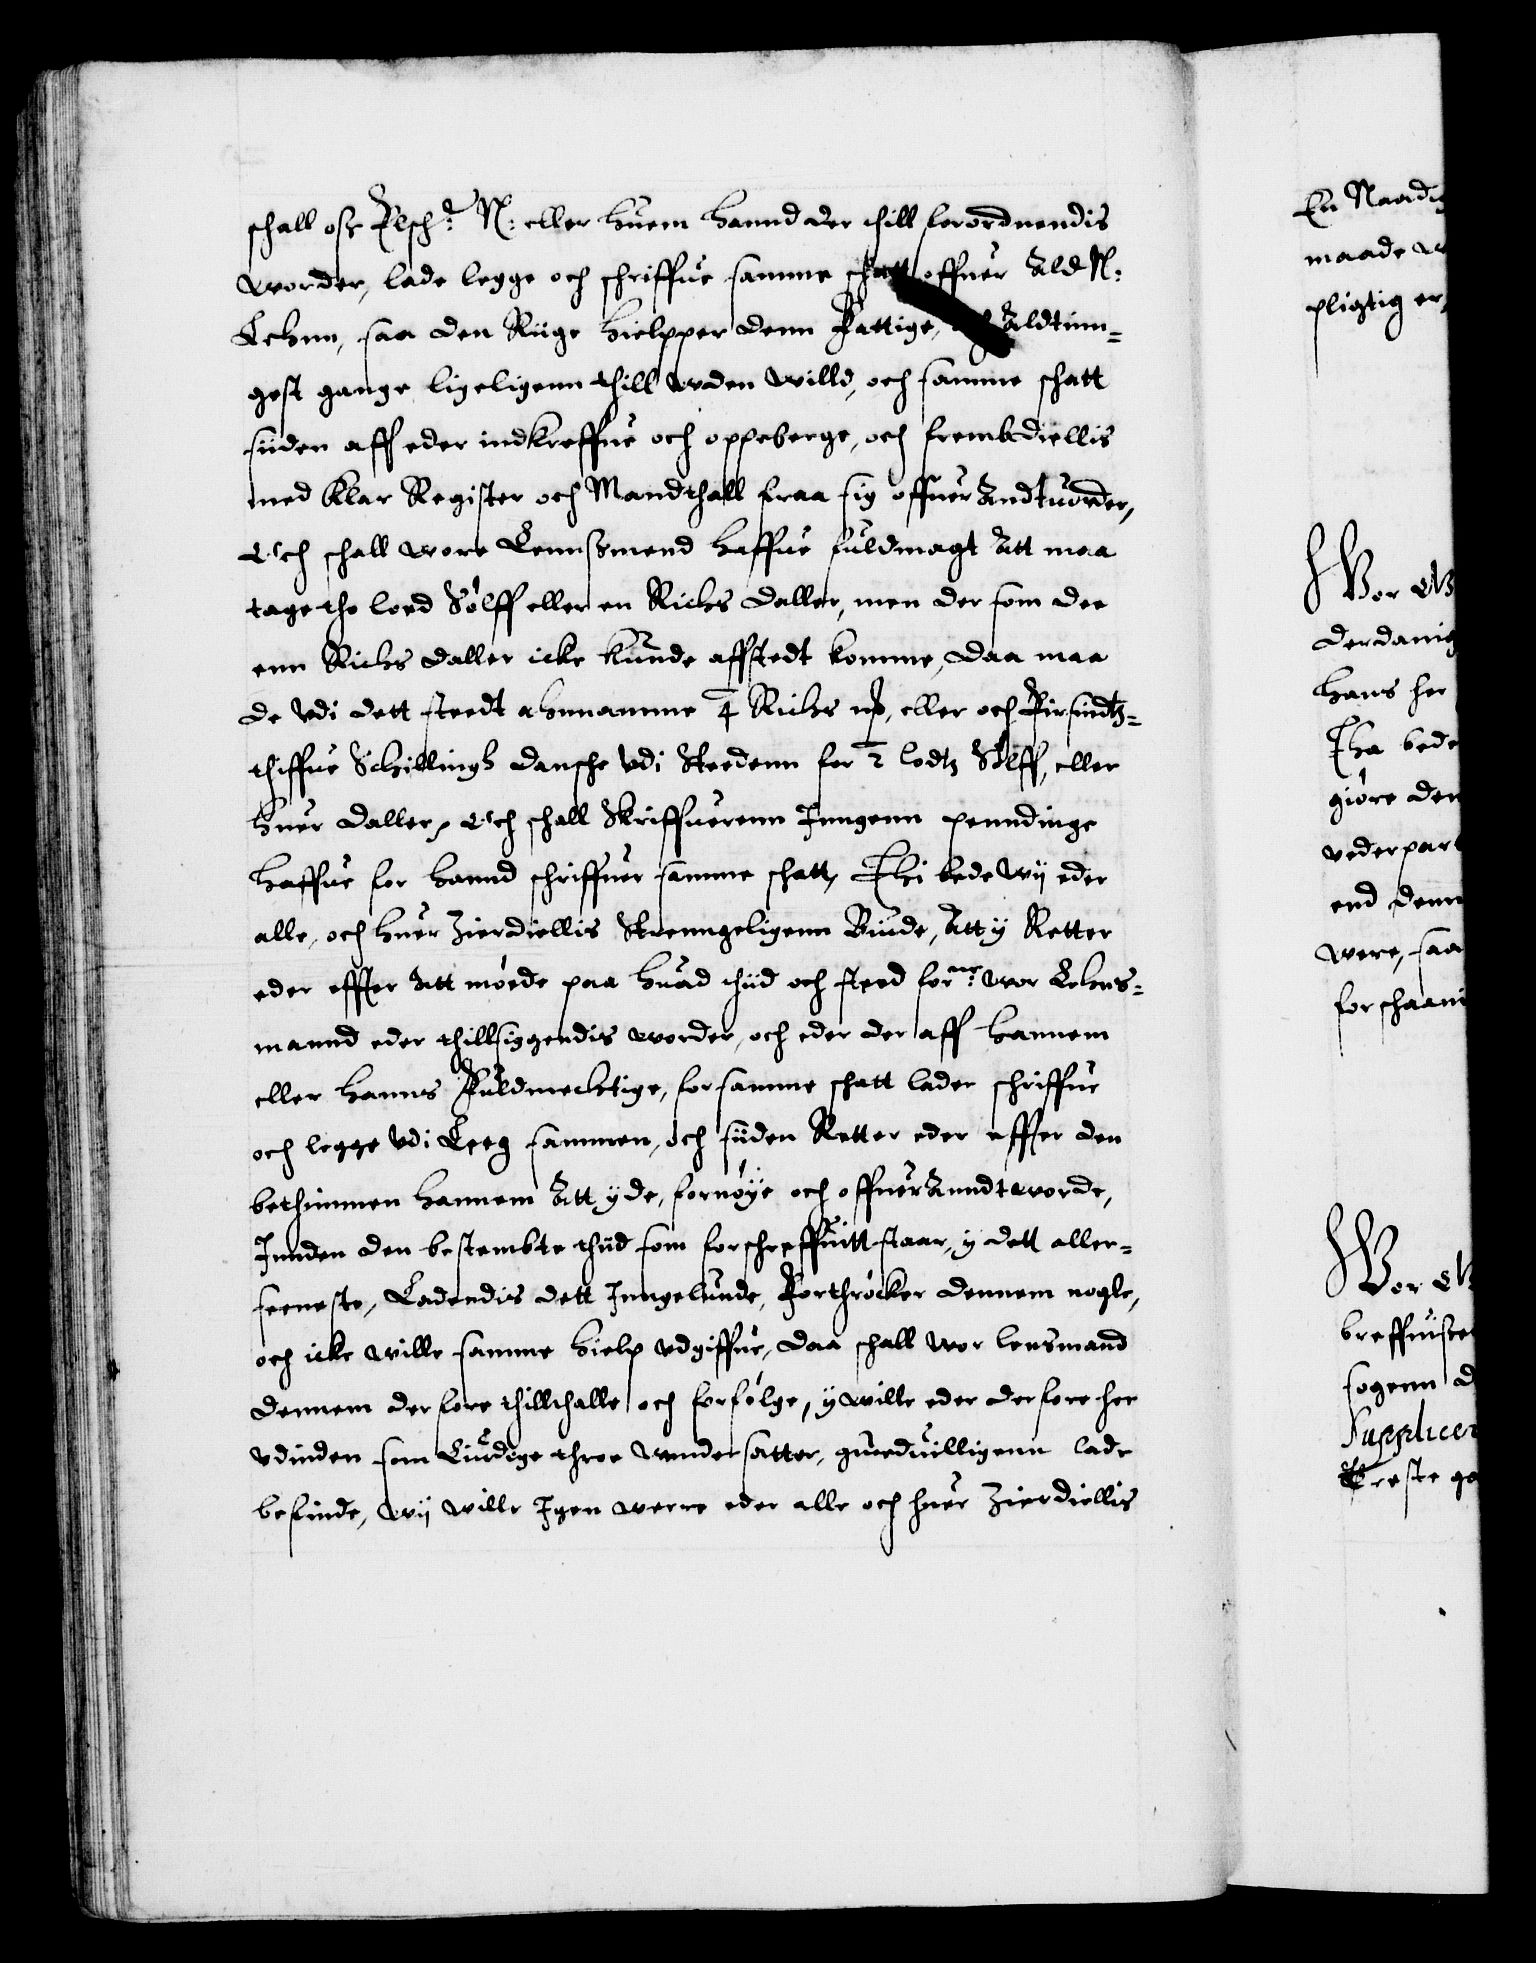 schall osz Elsch: N: eller huem hannd der thill forordnendis
worder, lade legge och schriffue samme schatt offuer Ald N:
Lehnn, saa den Riige hielpper denn Fattige, och Aldtinn-
gest gange ligeligenn thill uden willd, och samme schatt
siiden aff eder indkreffue och oppeberge, och frembdiellis
med klar Register och Mandthall fraa sig offuer Andtuorder,
Och schall wore Lennszmend haffue fuldmagt Att maa
tage tho loed Sölff eller en Richs daller, men der som dee
enn Richs daller icke kunde affstedt komme, daa maa
de udi dett stedt ahnnamme 4 Richs mk, eller och Firsindtz-
thiffue Schillingh dansche udi Steedenn for 2 lodtz Sölff, eller
huer daller, Och schall Skriffuerenn Inngenn penndinge
haffue for hannd schriffuer samme schatt, Thi bede wij eder
alle, och huer Zierdiellis Strenngeligenn Biude, Att y Retter
eder effter Att möede paa huad thiid och steed forne: wor Lehns-
mannd eder thillsiggendis worder, och eder der aff hannem
eller hanns Fuldmechtige, for samme schatt lader schriffue
och legge udi Leeg sammen, och siiden Retter eder effter den
bethimmen hannem Att yde, fornöye och offuerAnndtworde,
Innden den bestembte thiid som forschreffuitt staar, y dett aller-
seeneste, Ladendis dett Inngelunde, Forthröcker dennem nogle,
och icke wille samme hielp udgiffue, daa schall wor lensmand
dennem derfore thillthalle och forfölge, y wille eder derfore her
udinden som Liudige throe Wndersatter, guedvilligenn lade
befinde, wij wille Igen werre eder alle och huer Zierdiellis
En Naadi
maade w
pligtig er,
Wor
derdanig
hans her
Tha bede
giöre den
vederpart
end denn
were, saa
forschaan
Wor
breffuisse
sogenn d
Supplicer
reste